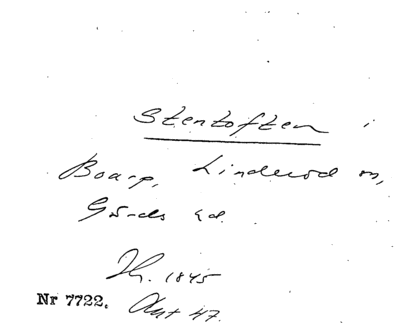 Stentoften i
Boarp, Linderöd sn,
Gärds hd.
Th. 1845
Nr 7722. Akt 47.